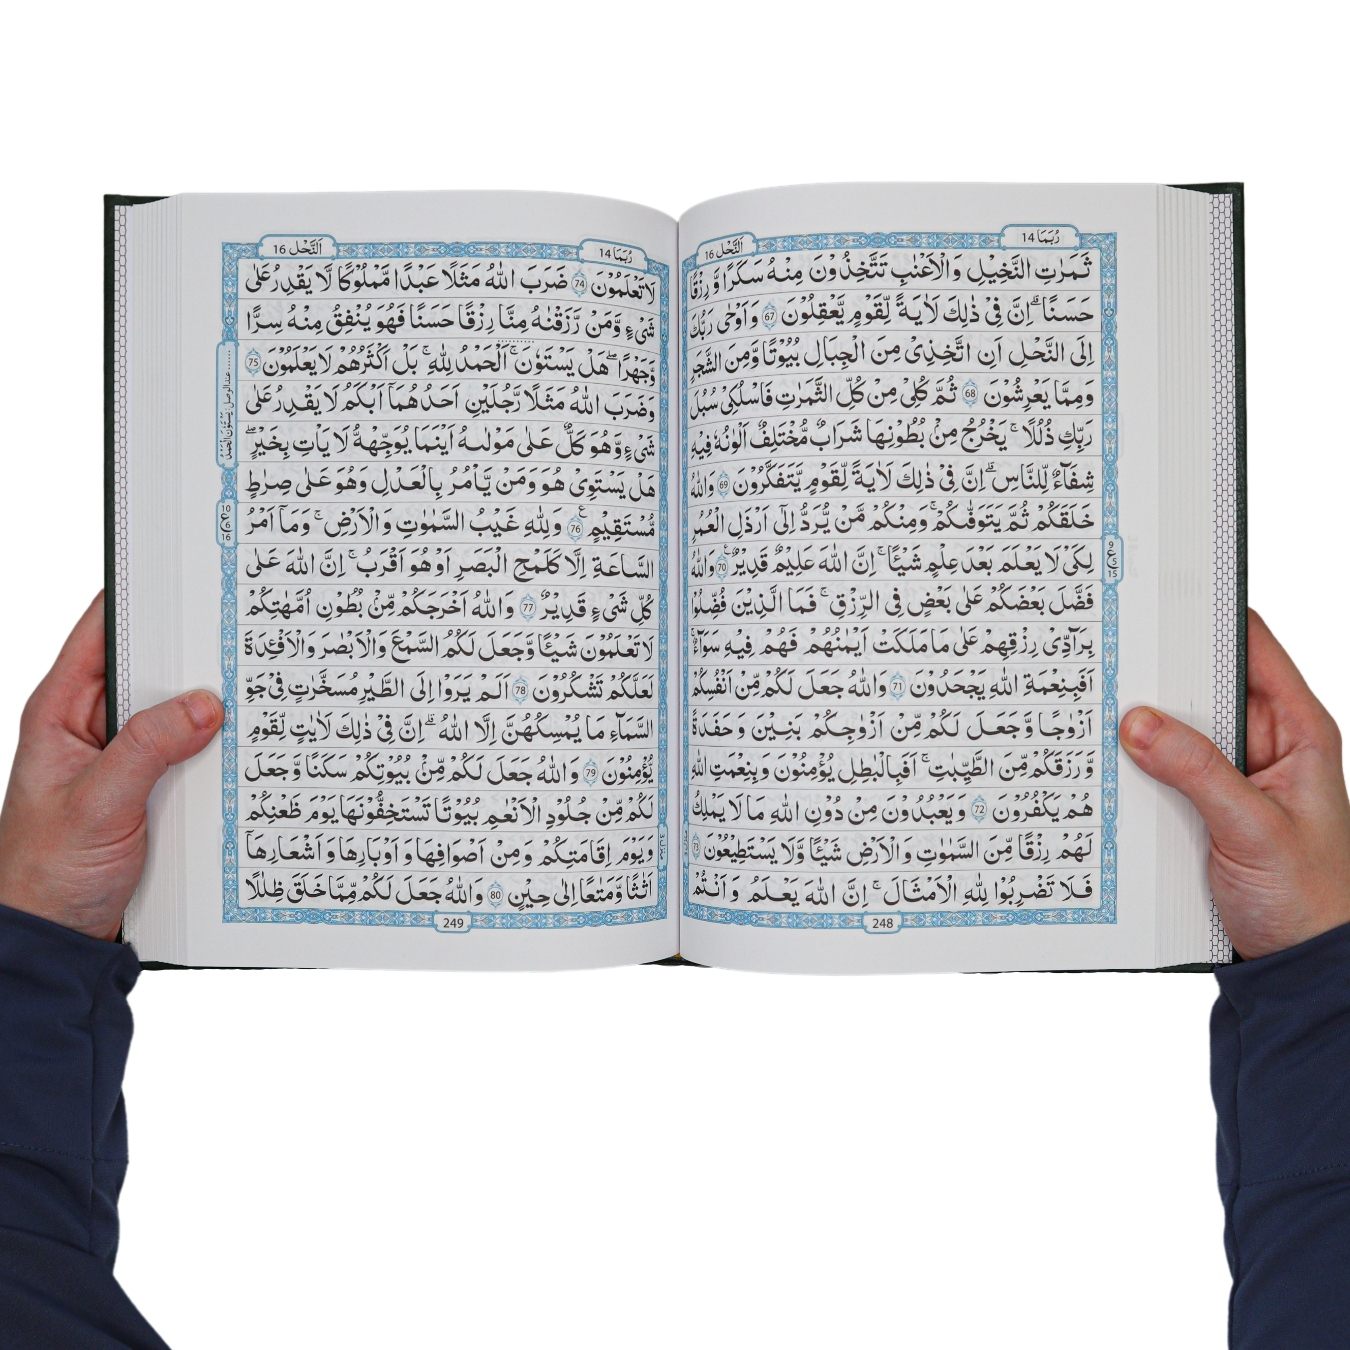 رُبَمَا 14
اَلنَّحْل 16
ثَمَرٰتِ النَّخِيْلِ وَالْاَعْنٰبِ تَتَّخِذُوْنَ مِنْهُ سَكَرًا وَّ رِزْقًا
حَسَنًا ؕ اِنَّ فِيْ ذٰلِكَ لَاٰيَةً لِّقَوْمٍ يَّعْقِلُوْنَ 67 وَ اَوْحٰى رَبُّكَ
اِلَى النَّحْلِ اَنِ اتَّخِذِيْ مِنَ الْجِبَالِ بُيُوْتًا وَّمِنَ الشَّجَرِ
وَمِمَّا يَعْرِشُوْنَ 68 ثُمَّ كُلِيْ مِنْ كُلِّ الثَّمَرٰتِ فَاسْلُكِيْ سُبُلَ
رَبِّكِ ذُلُلًا ۚ يَخْرُجُ مِنْ بُطُوْنِهَا شَرَابٌ مُّخْتَلِفٌ اَلْوٰنُهٗ فِيْهِ
شِفَآءٌ لِّلنَّاسِ ؕ اِنَّ فِيْ ذٰلِكَ لَاٰيَةً لِّقَوْمٍ يَّتَفَكَّرُوْنَ 69 وَاللّٰهُ
خَلَقَكُمْ ثُمَّ يَتَوَفّٰىكُمْ ۚ وَمِنْكُمْ مَّنْ يُّرَدُّ اِلٰٓى اَرْذَلِ الْعُمُرِ
لِكَيْ لَا يَعْلَمَ بَعْدَ عِلْمٍ شَيْـًٔا ؕ اِنَّ اللّٰهَ عَلِيْمٌ قَدِيْرٌ 70 وَاللّٰهُ
فَضَّلَ بَعْضَكُمْ عَلٰى بَعْضٍ فِى الرِّزْقِ ۚ فَمَا الَّذِيْنَ فُضِّلُوْا
بِرَآدِّيْ رِزْقِهِمْ عَلٰى مَا مَلَكَتْ اَيْمٰنُهُمْ فَهُمْ فِيْهِ سَوَآءٌ ؕ
اَفَبِنِعْمَةِ اللّٰهِ يَجْحَدُوْنَ 71 وَاللّٰهُ جَعَلَ لَكُمْ مِّنْ اَنْفُسِكُمْ
اَزْوٰجًا وَّجَعَلَ لَكُمْ مِّنْ اَزْوٰجِكُمْ بَنِيْنَ وَحَفَدَةً
وَّرَزَقَكُمْ مِّنَ الطَّيِّبٰتِ ؕ اَفَبِالْبٰطِلِ يُؤْمِنُوْنَ وَبِنِعْمَتِ اللّٰهِ
هُمْ يَكْفُرُوْنَ 72 وَيَعْبُدُوْنَ مِنْ دُوْنِ اللّٰهِ مَا لَا يَمْلِكُ
لَهُمْ رِزْقًا مِّنَ السَّمٰوٰتِ وَالْاَرْضِ شَيْـًٔا وَّلَا يَسْتَطِيْعُوْنَ 73
فَلَا تَضْرِبُوْا لِلّٰهِ الْاَمْثَالَ ؕ اِنَّ اللّٰهَ يَعْلَمُ وَاَنْتُمْ
9
ع
5
15
248
رُبَمَا 14
اَلنَّحْل 16
لَا تَعْلَمُوْنَ 74 ضَرَبَ اللّٰهُ مَثَلًا عَبْدًا مَّمْلُوْكًا لَّا يَقْدِرُ عَلٰى
شَيْءٍ وَّمَنْ رَّزَقْنٰهُ مِنَّا رِزْقًا حَسَنًا فَهُوَ يُنْفِقُ مِنْهُ سِرًّا
وَّجَهْرًا ؕ هَلْ يَسْتَوٗنَ ؕ اَلْحَمْدُ لِلّٰهِ ؕ بَلْ اَكْثَرُهُمْ لَا يَعْلَمُوْنَ 75
وَضَرَبَ اللّٰهُ مَثَلًا رَّجُلَيْنِ اَحَدُهُمَآ اَبْكَمُ لَا يَقْدِرُ عَلٰى
شَيْءٍ وَّهُوَ كَلٌّ عَلٰى مَوْلٰىهُ اَيْنَمَا يُوَجِّهْهُّ لَا يَاْتِ بِخَيْرٍ ؕ
هَلْ يَسْتَوِيْ هُوَ وَمَنْ يَّاْمُرُ بِالْعَدْلِ وَهُوَ عَلٰى صِرٰطٍ
مُّسْتَقِيْمٍ 76 وَلِلّٰهِ غَيْبُ السَّمٰوٰتِ وَالْاَرْضِ ؕ وَمَآ اَمْرُ
السَّاعَةِ اِلَّا كَلَمْحِ الْبَصَرِ اَوْ هُوَ اَقْرَبُ ؕ اِنَّ اللّٰهَ عَلٰى
كُلِّ شَيْءٍ قَدِيْرٌ 77 وَاللّٰهُ اَخْرَجَكُمْ مِّنْ بُطُوْنِ اُمَّهٰتِكُمْ
لَا تَعْلَمُوْنَ شَيْـًٔا وَّجَعَلَ لَكُمُ السَّمْعَ وَالْاَبْصٰرَ وَالْاَفْـِٕدَةَ
لَعَلَّكُمْ تَشْكُرُوْنَ 78 اَلَمْ يَرَوْا اِلَى الطَّيْرِ مُسَخَّرٰتٍ فِيْ جَوِّ
السَّمَآءِ مَا يُمْسِكُهُنَّ اِلَّا اللّٰهُ ؕ اِنَّ فِيْ ذٰلِكَ لَاٰيٰتٍ لِّقَوْمٍ
يُّؤْمِنُوْنَ 79 وَاللّٰهُ جَعَلَ لَكُمْ مِّنْ بُيُوْتِكُمْ سَكَنًا وَّجَعَلَ
لَكُمْ مِّنْ جُلُوْدِ الْاَنْعٰمِ بُيُوْتًا تَسْتَخِفُّوْنَهَا يَوْمَ ظَعْنِكُمْ
وَيَوْمَ اِقَامَتِكُمْ وَمِنْ اَصْوَافِهَا وَاَوْبَارِهَا وَاَشْعَارِهَآ
اَثٰثًا وَّمَتٰعًا اِلٰى حِيْنٍ 80 وَاللّٰهُ جَعَلَ لَكُمْ مِّمَّا خَلَقَ ظِلٰلًا
10
ع
6
16
249